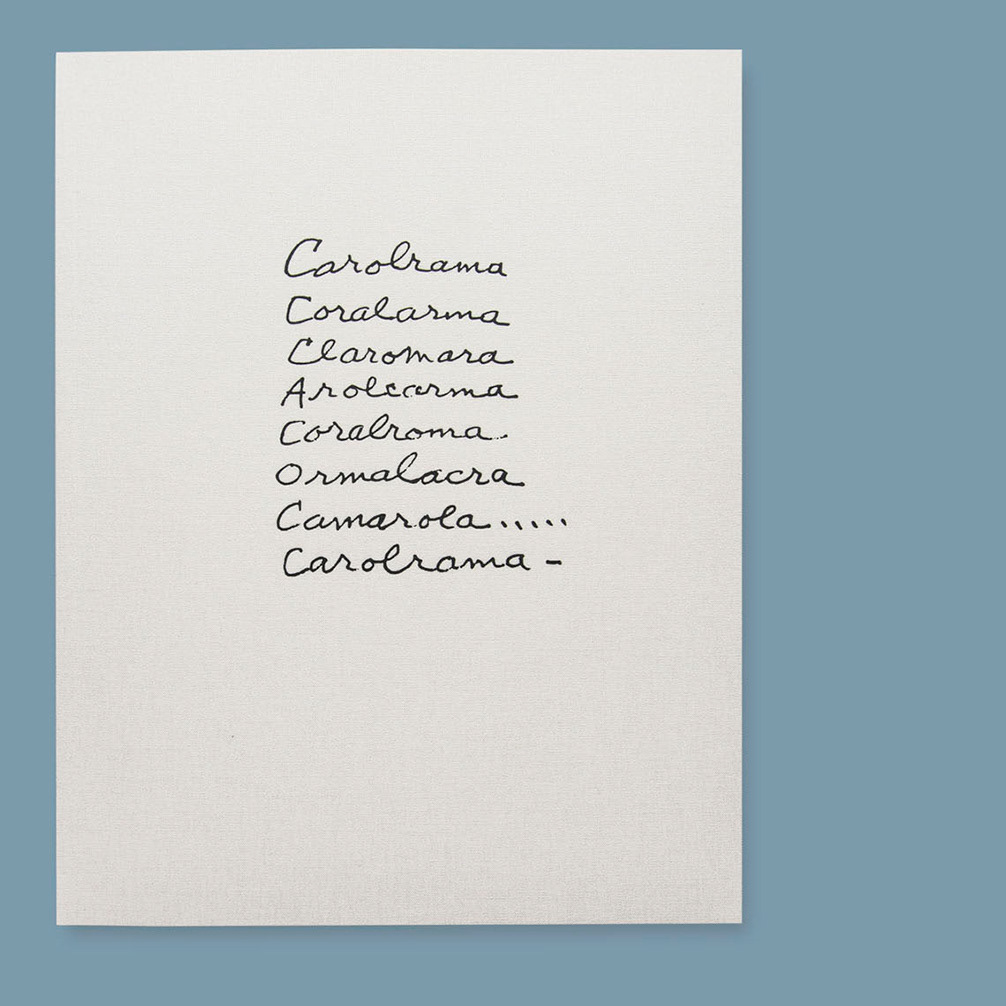 Carolrama
Coralarma
Claromara
Arolcarma
Coralroma.
Ormalacra
Camarola.....
Carolrama -